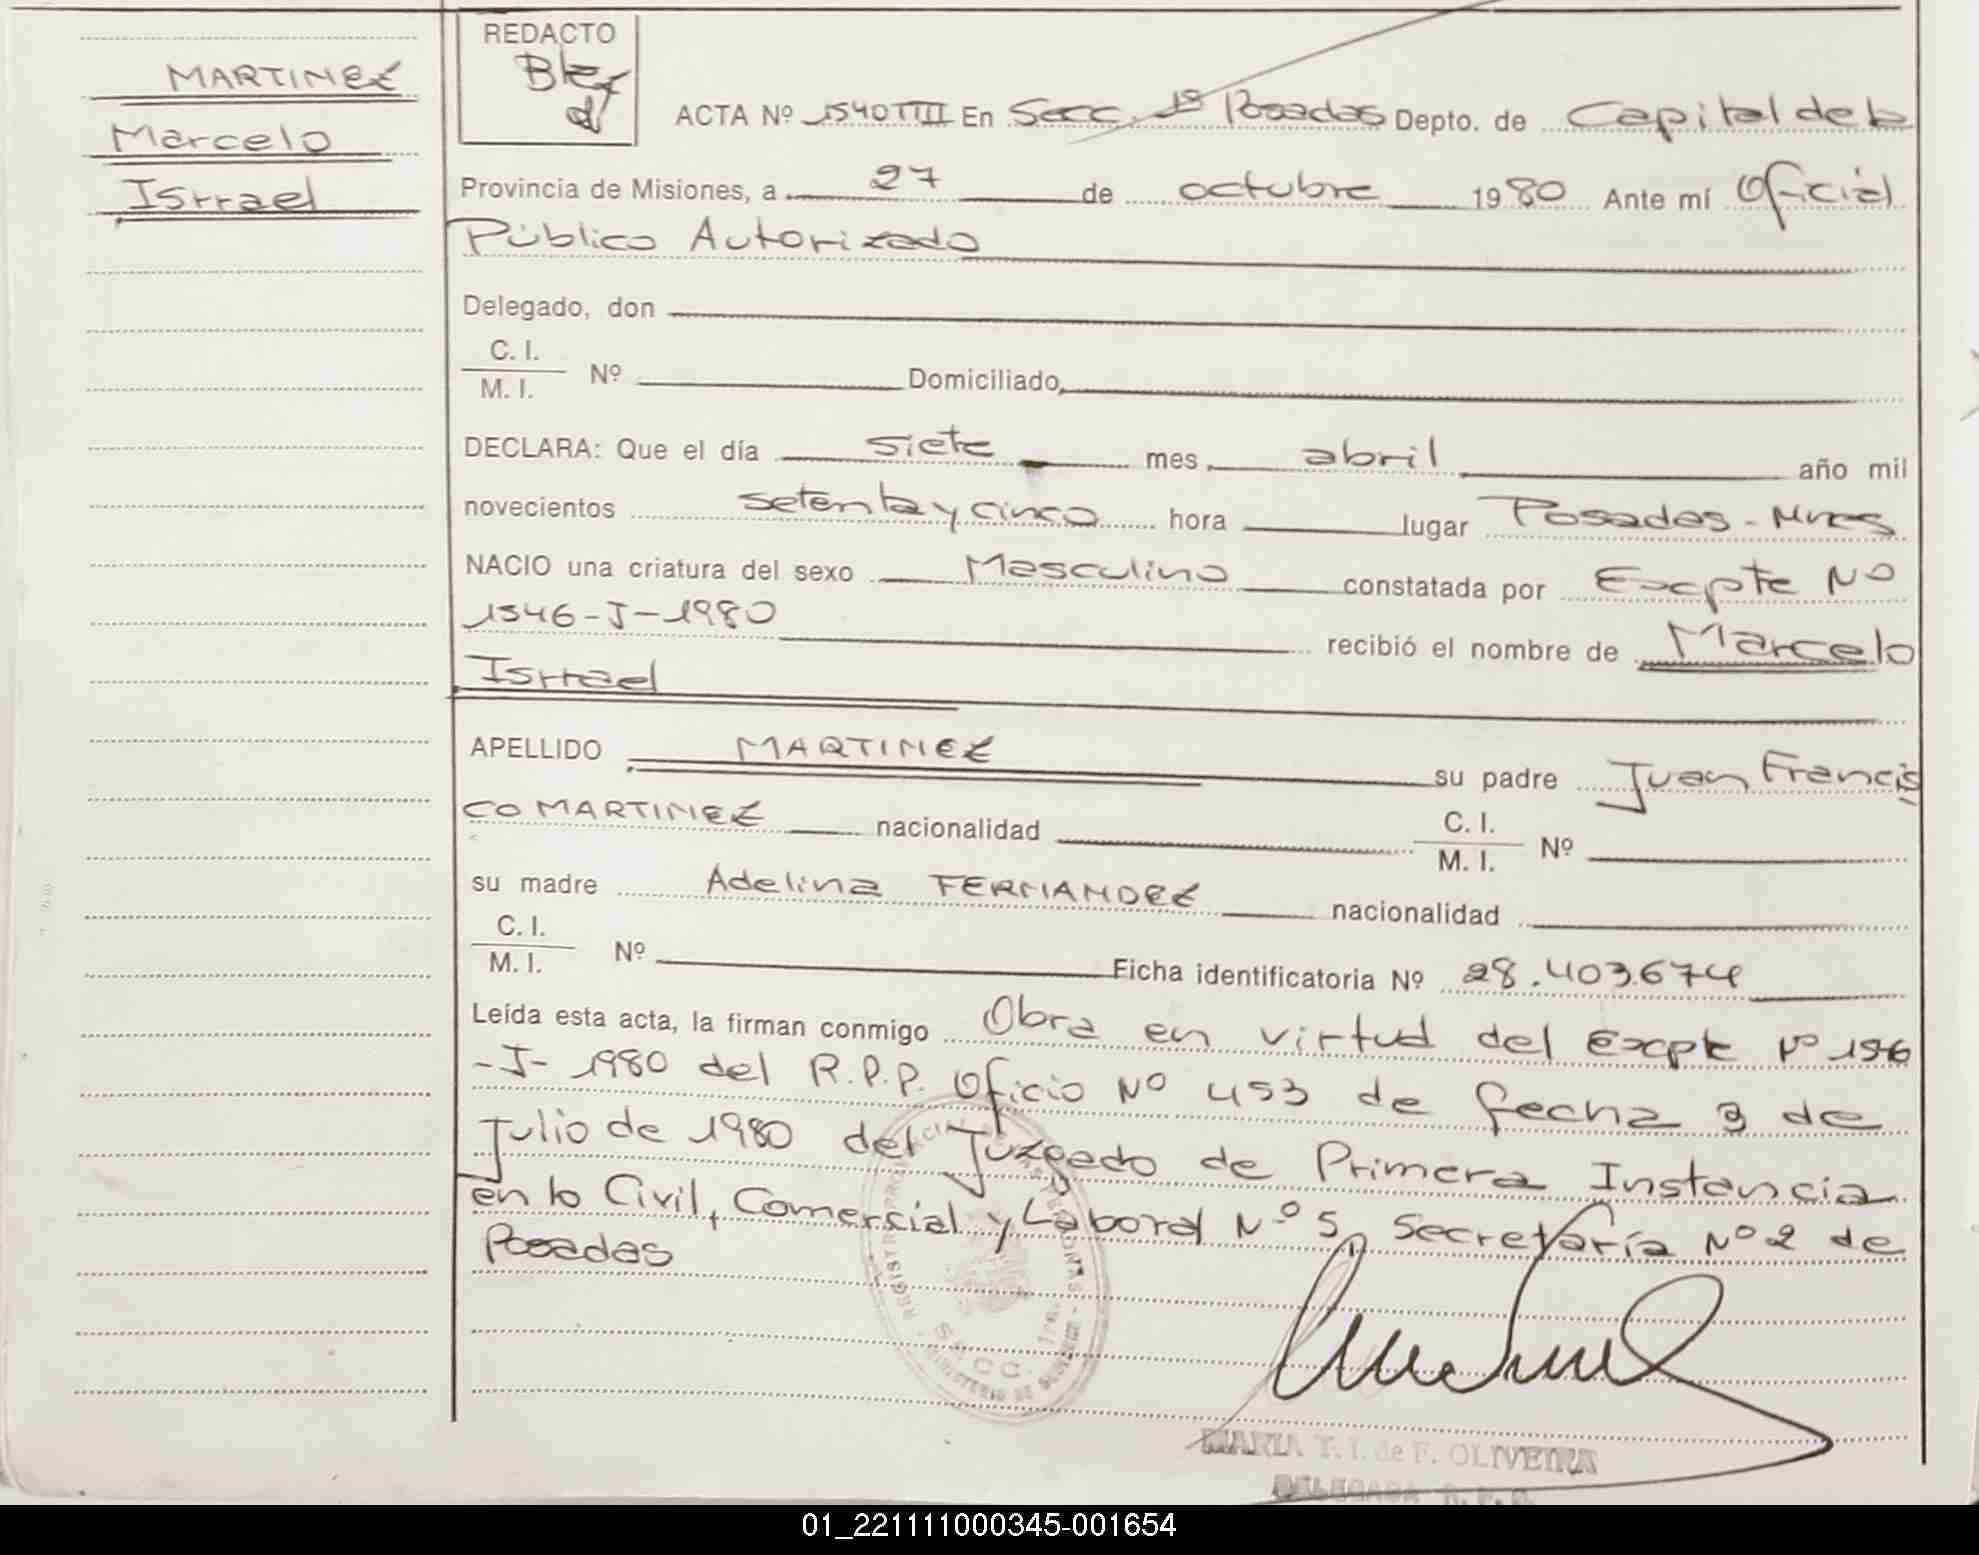 MARTINEZ
Marcelo
Isrrael
REDACTO
ACTA Nº 1540 TIII En Secc. 1ª Posadas Depto. de Capital de la
Provincia de Misiones, a 27 de octubre 1980 Ante mí Oficial
Público Autorizado
Delegado, don
C. I.
M. I. Nº Domiciliado,
DECLARA: Que el día siete mes abril año mil
novecientos setenta y cinco hora lugar Posadas - Mnes
NACIO una criatura del sexo Masculino constatada por Excpte Nº
1546-J-1980 recibió el nombre de Marcelo
Isrrael
APELLIDO MARTINEZ su padre Juan Francis
co MARTINEZ nacionalidad C. I.
M. I. Nº
su madre Adelina FERNANDEZ nacionalidad
C. I.
M. I. Nº Ficha identificatoria Nº 28.403.674
Leída esta acta, la firman conmigo Obra en virtud del Excpte Nº
-J- 1980 del R.P.P. Oficio Nº 453 de fecha 3 de
Julio de 1980 del Juzgado de Primera Instancia
en lo Civil, Comercial y Laboral Nº 5, Secretaría Nº 2 de
Posadas
MARIA T. I. de F. OLIVEIRA
DELEGADA R. P. P.
01_221111000345-001654